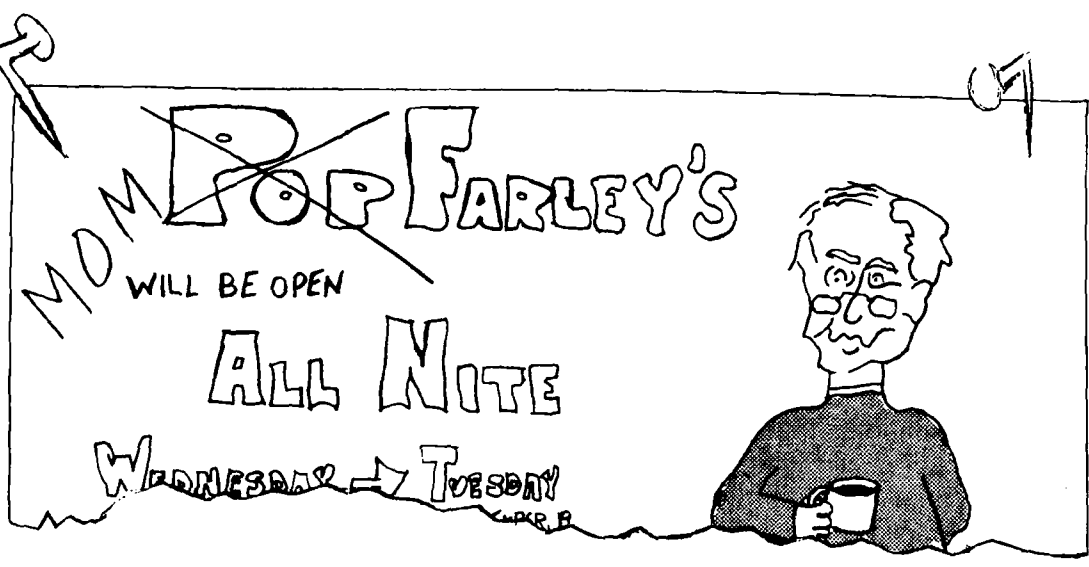 MOM
POP FARLEY'S
WILL BE OPEN
ALL NITE
WEDNESDAY → TUESDAY